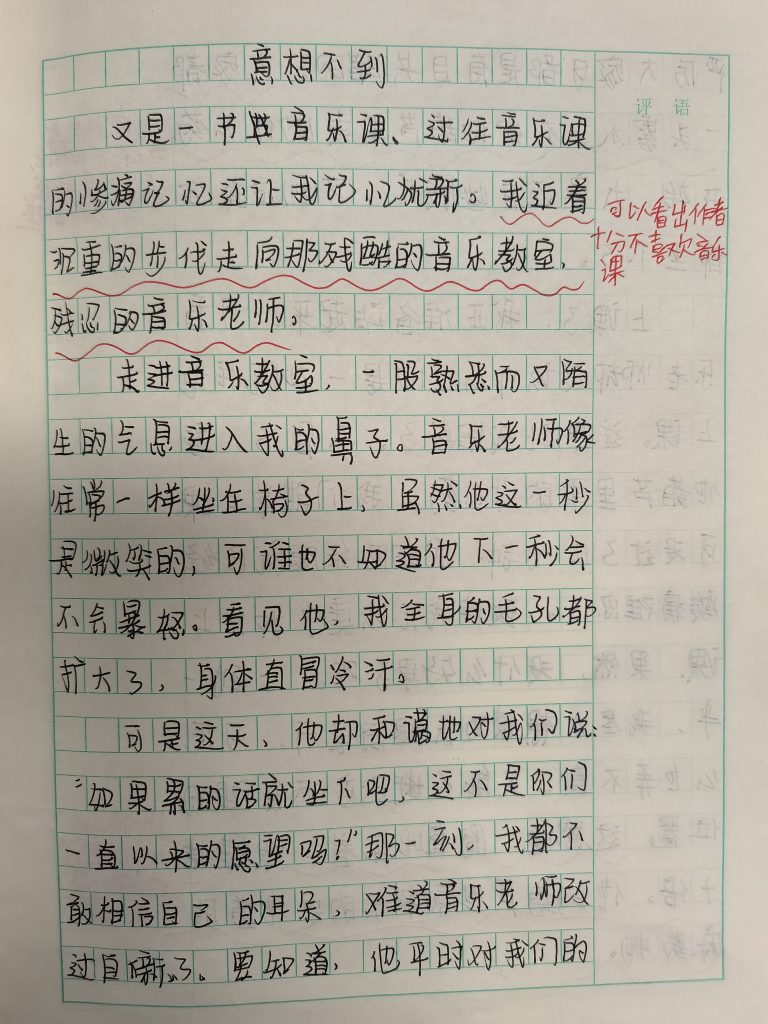 意想不到
评语
又是一书 音乐课、过往音乐课
的惨痛记忆还让我记忆犹新。我迈着
沉重的步伐走向那残酷的音乐教室，
残忍的音乐老师。
可以看出作者
十分不喜欢音乐
课
走进音乐教室，一股熟悉而又陌
生的气息进入我的鼻子。音乐老师像
往常一样坐在椅子上，虽然他这一秒
是微笑的，可谁也不知道他下一秒会
不会暴怒。看见他，我全身的毛孔都
扩大了，身体直冒冷汗。
可是这天，他却和蔼地对我们说：
“如果累的话就坐下吧，这不是你们
一直以来的愿望吗？”那一刻，我都不
敢相信自己的耳朵，难道音乐老师改
过自新了。要知道，他平时对我们的